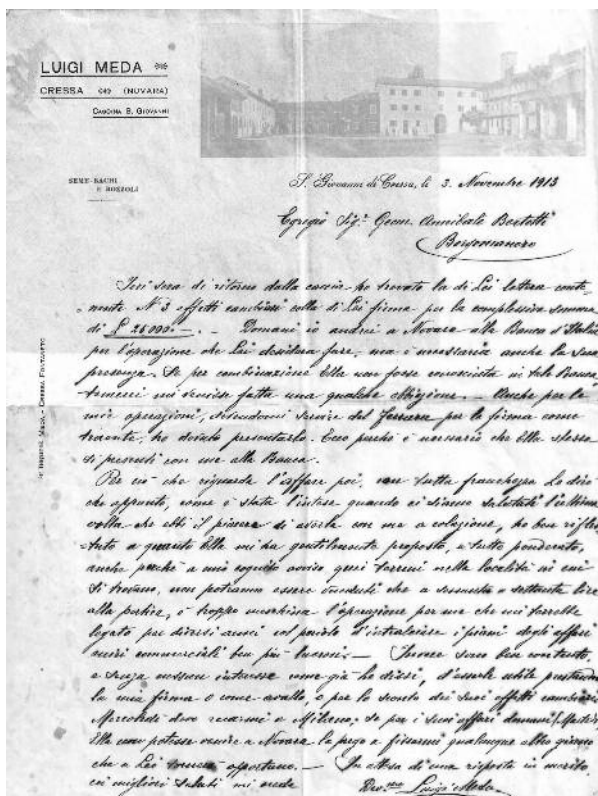 LUIGI MEDA
CRESSA (NOVARA)
CASCINA S. GIOVANNI
SEME-BACHI
E BOZZOLI
S. Giovanni di Cressa, li 3. Novembre 1913
Egregio Sig. Geom. Annibale
Borgomanero
Ieri sera di ritorno dalla caccia ho trovato la di Lei lettera conte-
nente N. 3 effetti cambiari colla di Lei firma per la complessiva somma
di £ 25000 —. — Domani io andrei a Novara alla Banca d'Italia
per l'operazione che Lei desidera fare, ma è necessaria anche la sua
presenza. Se per combinazione Ella non fosse conosciuta in tale Banca,
temerei mi venisse fatta una qualche obbiezione. — Anche per le
mie operazioni, dovendomi servire del Ferrara per la firma come
traente, ho dovuto presentarlo. Ecco perchè è necessario che Ella stessa
si presenti con me alla Banca.
Per ciò che riguarda l'affare poi, con tutta franchezza Le dirò
che appunto, come è stata l'intesa quando ci siamo salutati l'ultima
volta che ebbi il piacere di averla con me a colazione, ho ben riflet-
tuto a quanto Ella mi ha gentilmente proposto, e tutto ponderato,
anche perchè a mio avviso quei terreni nella località in cui
si trovano, non potranno essere venduti che a sessanta o settanta lire
alla pertica, è troppo meschina l'operazione per me che mi terrebbe
legato per diversi anni col d'intralciare i piani degli affari
miei commerciali ben più lucrosi. — Invece sono ben contento,
e senza nessun interesse come già Le dissi, d'esserle utile prestando
la mia firma o come avallo, o per lo sconto dei suoi effetti cambiari
Mercoledì devo recarmi a Milano; se per i suoi affari domani (Martedì)
Ella non potesse venire a Novara la prego a fissarmi qualunque altro giorno
che a Lei tornerà opportuno. — In attesa di una risposta in merito,
coi migliori saluti mi creda
Dev.mo Luigi Meda